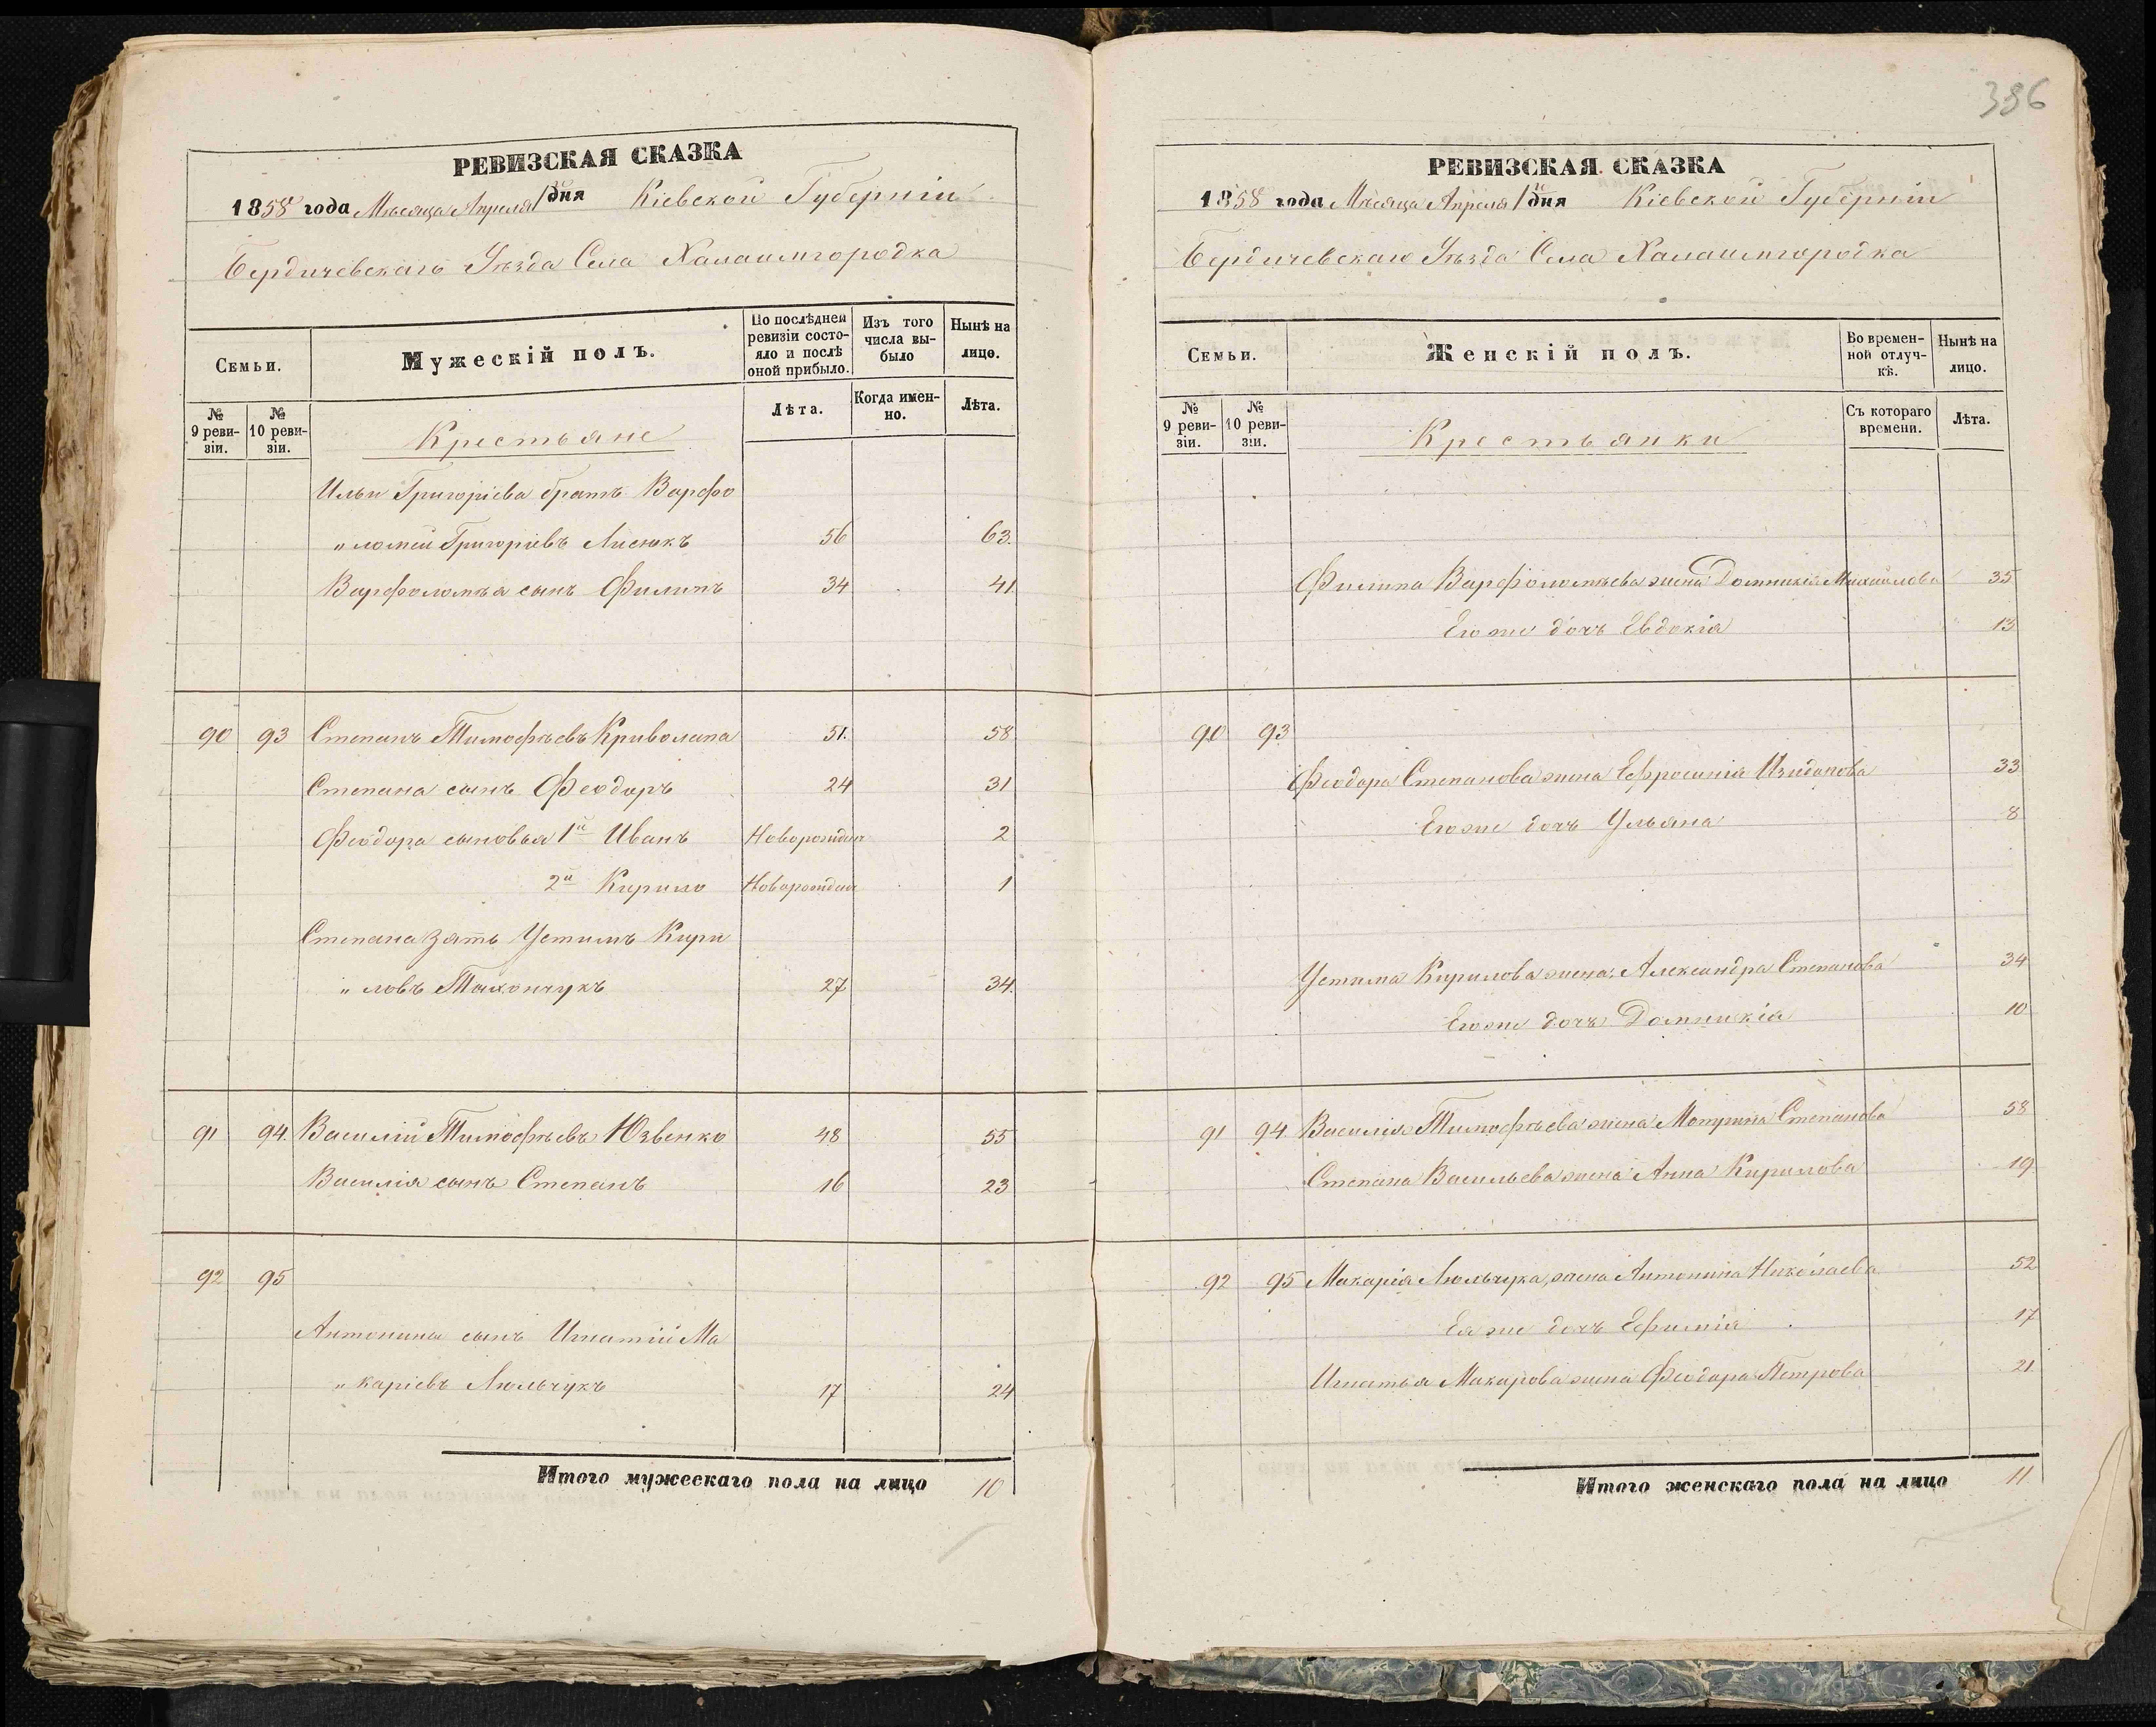 РЕВИЗСКАЯ СКАЗКА
1858 года Мѣсяца Апреля 1го дня Кіевской Губерніи
Бердичевскаго Уѣзда Села Халаимгородка
Семьи.
Мужескій полъ.
По послѣдней ревизіи состояло и послѣ оной прибыло.
Изъ того числа выбыло
Нынѣ на лицо.
№ 9 ревизіи.
№ 10 ревизіи.
Крестьяне
Лѣта.
Когда именно.
Лѣта.
Ильи Григоріева братъ Варфо
„ломей Григоріевъ Лисюкъ 56 63.
Варфоломѣя сынъ Филипъ 34 41
90 93 Степанъ Тимофѣевъ Криволапа 51. 58
Степана сынъ Феодоръ 24 31
Феодора сыновья 1й Иванъ Новорожден 2
2й Кирило Новорожден 1
Степана зять Устимъ Кири
„ловъ Тихончукъ 27 34.
91 94. Василій Тимофѣевъ Юзвенко 48 55
Василія сынъ Степанъ 16 23
92 95
Антонины сынъ Игнатій Ма
„каріевъ Люльчукъ 17 24
Итого мужескаго пола на лицо 10
386
РЕВИЗСКАЯ СКАЗКА
1858 года Мѣсяца Апреля 1го дня Кіевской Губерніи
Бердичевскаго Уѣзда Села Халаимгородка
Семьи.
Женскій полъ.
Во временной отлучкѣ.
Нынѣ на лицо.
№ 9 ревизіи.
№ 10 ревизіи.
Крестьянки
Съ котораго времени.
Лѣта.
Филипа Варфоломѣева жена Домникія Михайлова 35
Его же дочь Евдокія 13
90 93
Феодора Степанова жена Ефросинія Изидорова 33
Его же дочь Ульяна 8
Устима Кирилова жена Александра Степанова 34
Его же дочь Домникія 10
91 94 Василія Тимофѣева жена Мотрина Степанова 58
Степана Васильева жена Анна Кирилова 19
92 95 Макарія Люльчука, жена Антонина Николаева 52
Ея же дочь Ефимія 17
Игнатья Макарова жена Феодора Петрова 21
Итого женскаго пола на лицо 11